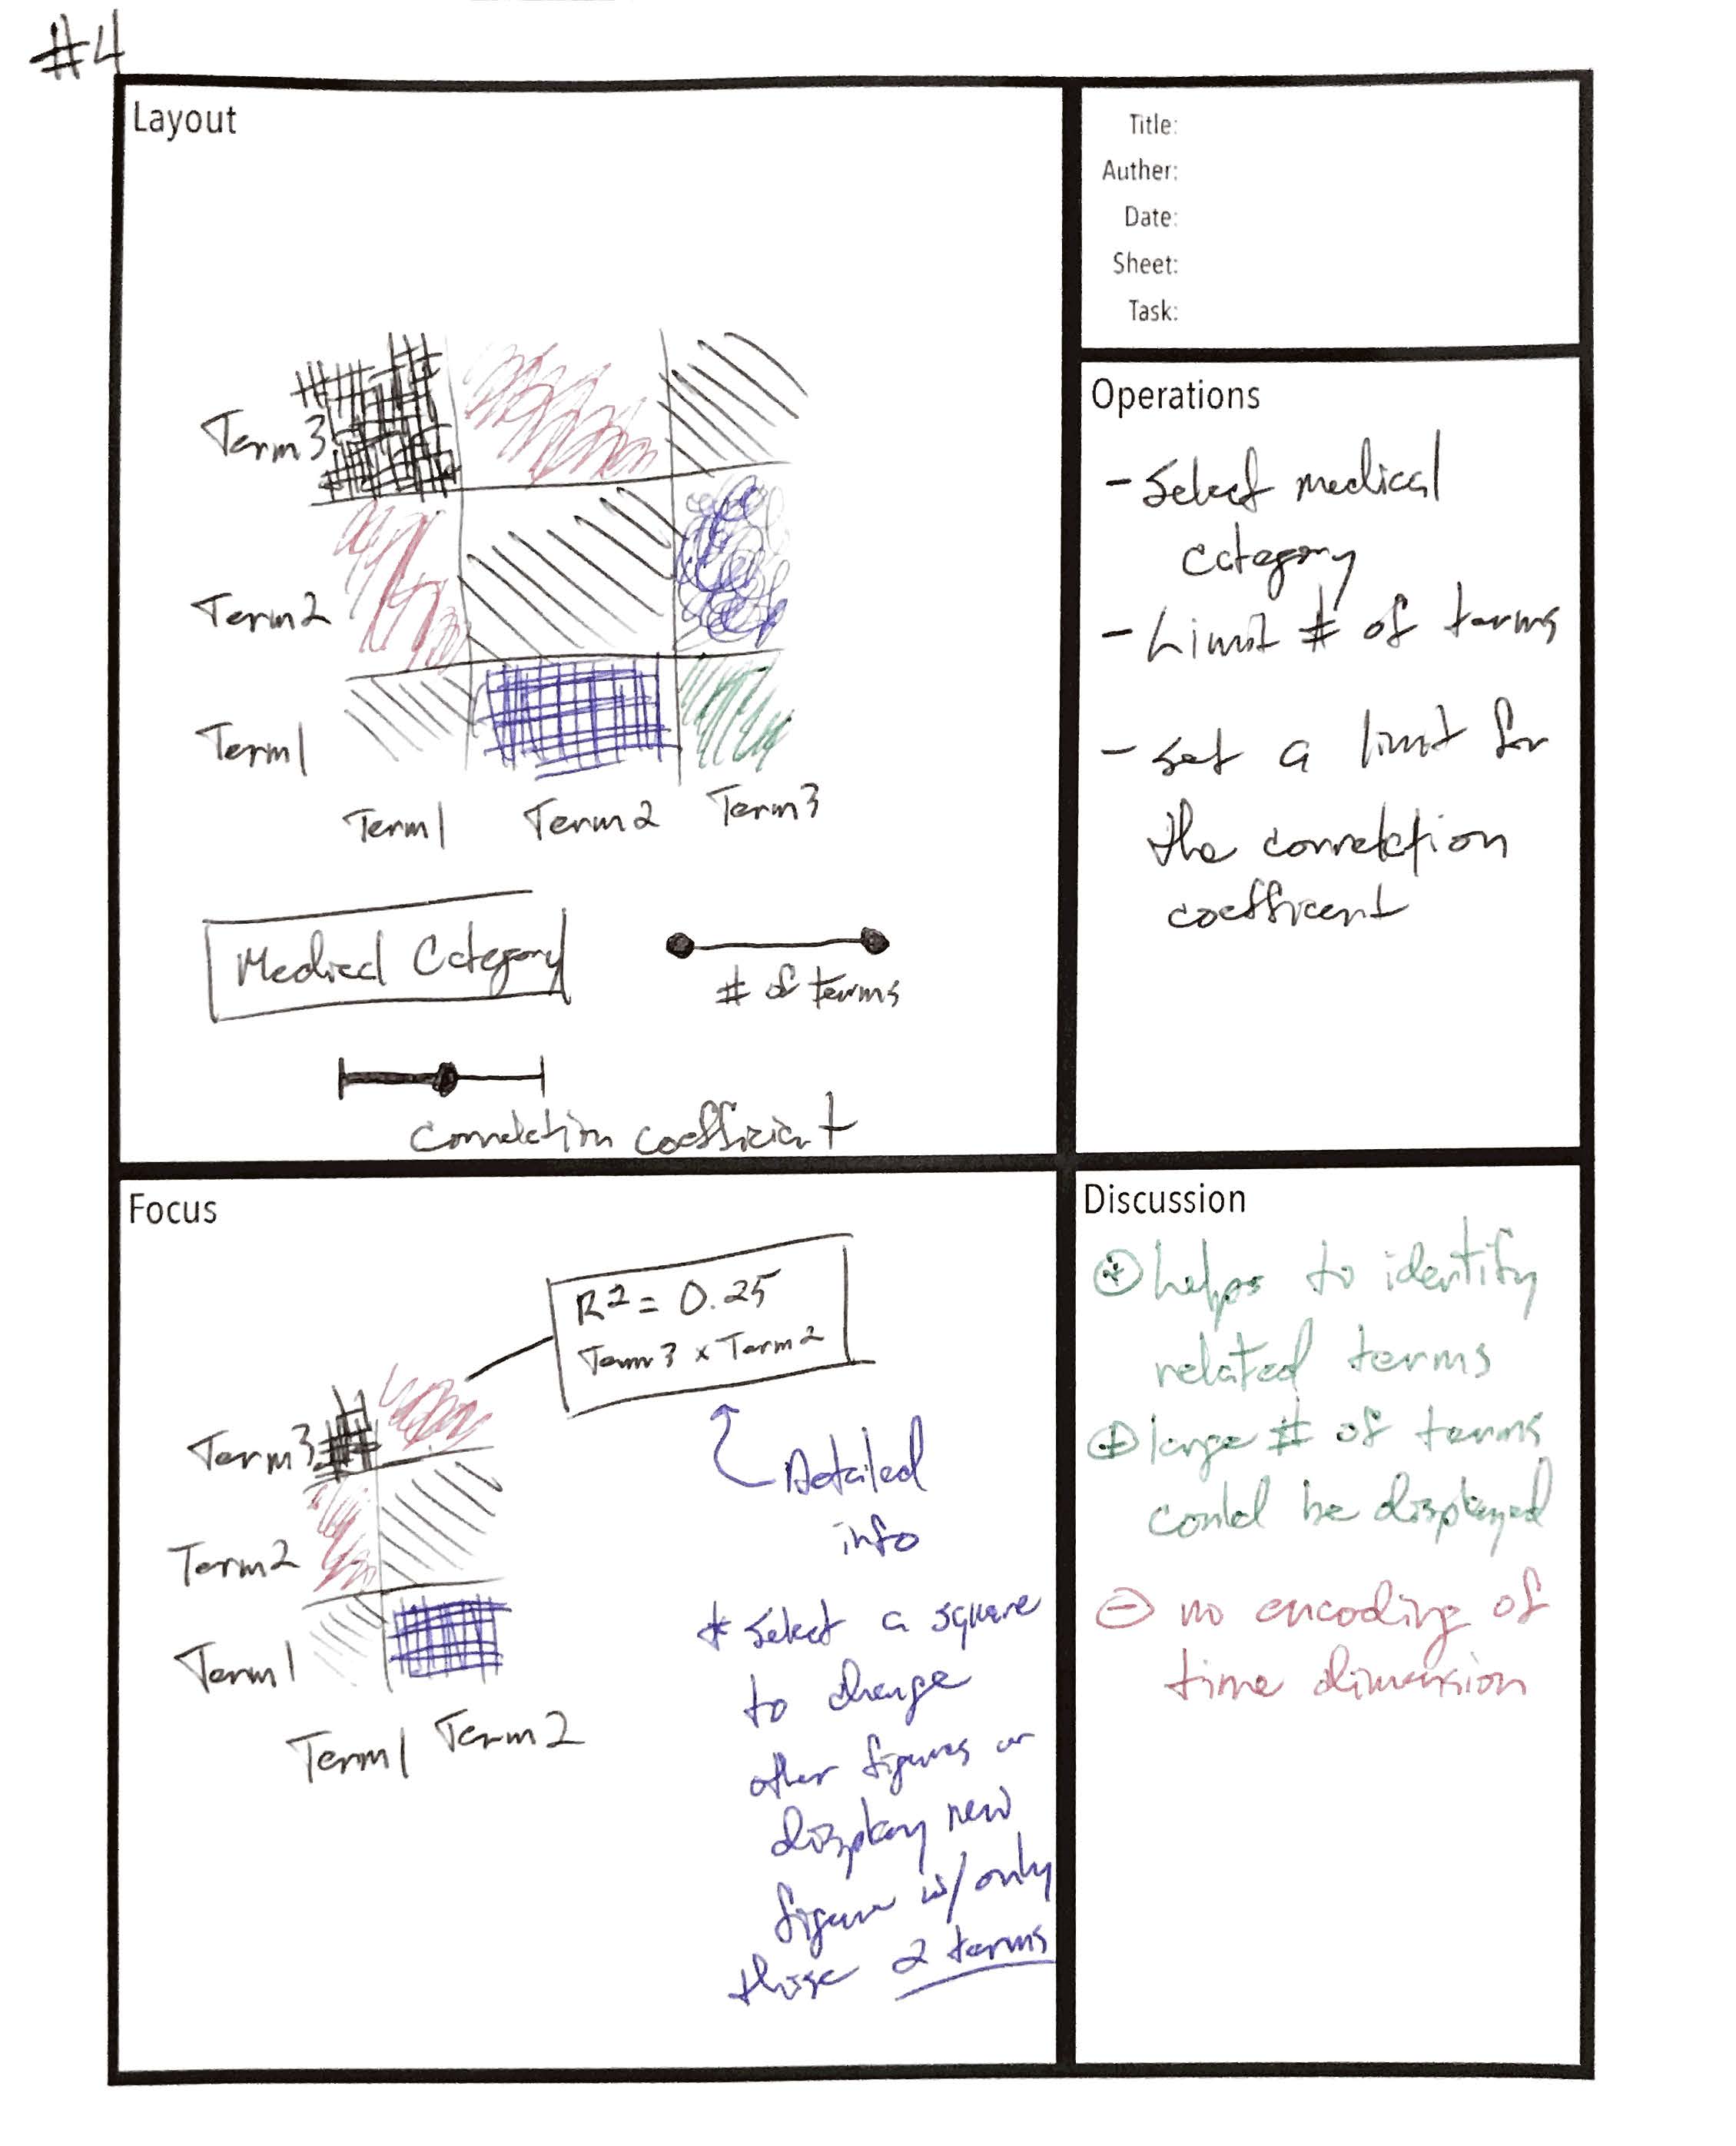 #4
Layout
Term3
Term2
Term1
Term1 Term2 Term3
Medical Category
# of terms
Correlation coefficient
Title:
Auther:
Date:
Sheet:
Task:
Operations
- Select medical
category
- Limit # of terms
- set a limit for
the correlation
coefficient
Focus
R² = 0.25
Term3 x Term2
Term3
Term2
Term1
Term1 Term2
Detailed
info
* select a square
to change
other figures or
display new
figure w/ only
those 2 terms
Discussion
⊕ helps to identify
related terms
⊕ large # of terms
could be displayed
⊖ no encoding of
time dimension